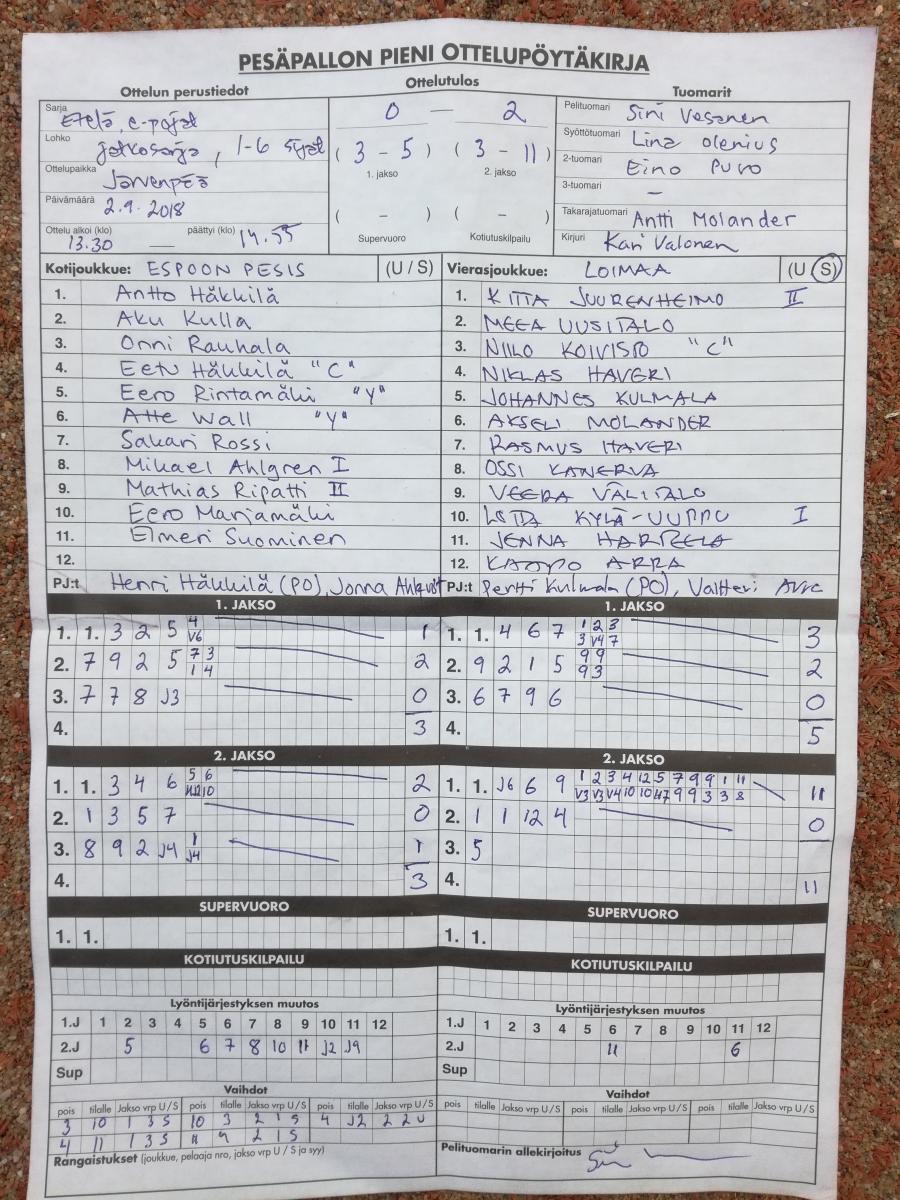 PESÄPALLON PIENI OTTELUPÖYTÄKIRJA
Ottelun perustiedot
Sarja Etelä, e-pojat
Lohko jatkosarja, 1-6 sijat
Ottelupaikka Järvenpää
Päivämäärä 2.9.2018
Ottelu alkoi (klo) 13.30 — päättyi (klo) 14.55
Ottelutulos
0 — 2
(3 - 5) (3 - 11)
1. jakso 2. jakso
( - ) ( - )
Supervuoro Kotiutuskilpailu
Tuomarit
Pelituomari Sini Vesanen
Syöttötuomari Lina Olenius
2-tuomari Eino Puro
3-tuomari —
Takarajatuomari Antti Molander
Kirjuri Kari Valonen
Kotijoukkue: ESPOON PESIS (U / S)
1. Antto Häkkilä
2. Aku Kulla
3. Onni Rauhala
4. Eetu Häkkilä "C"
5. Eero Rintamäki "Y"
6. Atte Wall "Y"
7. Sakari Rossi
8. Mikael Ahlgren I
9. Mathias Ripatti II
10. Eero Marjamäki
11. Elmeri Suominen
12.
PJ:t Henri Häkkilä (PO), Jonna Ahlqvist
Vierasjoukkue: LOIMAA (U / S)
1. KIITA JUURENHEIMO II
2. MEEA UUSITALO
3. NIILO KOIVISTO "C"
4. NIKLAS HAVERI
5. JOHANNES KULMALA
6. AKSELI MOLANDER
7. RASMUS HAVERI
8. OSSI KANERVA
9. VEERA VÄLITALO
10. KYLÄ-UUPPU I
11. JENNA
12. KAAPO ARRA
PJ:t Pertti Kulmala (PO), Valtteri
1. JAKSO
1. 1. 3 2 5 4 1
V6
2. 7 9 2 5 7 3 2
1 4
3. 7 7 8 J3 0
4. 3
1. JAKSO
1. 1. 4 6 7 1 2 3 3
3 V4 7
2. 9 2 1 5 9 9 2
9 3
3. 6 7 9 6 0
4. 5
2. JAKSO
1. 1. 3 4 6 5 6 2
10
2. 1 3 5 7 0
3. 8 9 2 J4 1 1
J4
4. 3
2. JAKSO
1. 1. J6 6 9 1 2 3 4 12 5 7 9 9 1 11 11
V3 V3 V4 10 10 9 9 3 3 8
2. 1 1 12 4 0
3. 5
4. 11
SUPERVUORO
1. 1.
SUPERVUORO
1. 1.
KOTIUTUSKILPAILU
KOTIUTUSKILPAILU
Lyöntijärjestyksen muutos
1.J 1 2 3 4 5 6 7 8 9 10 11 12
2.J 5 6 7 8 10 11 J2 J9
Sup
Vaihdot
pois tilalle Jakso vrp U / S pois tilalle Jakso vrp U / S pois tilalle Jakso vrp U / S
3 10 1 3 S 10 3 2 1 S 4 J2 2 2 U
4 11 1 3 S 11 9 2 1 S
Rangaistukset (joukkue, pelaaja nro, jakso vrp U / S ja syy)
Lyöntijärjestyksen muutos
1.J 1 2 3 4 5 6 7 8 9 10 11 12
2.J 11 6
Sup
Vaihdot
pois tilalle Jakso vrp U / S pois tilalle Jakso vrp U / S pois tilalle Jakso vrp U / S
Pelituomarin allekirjoitus